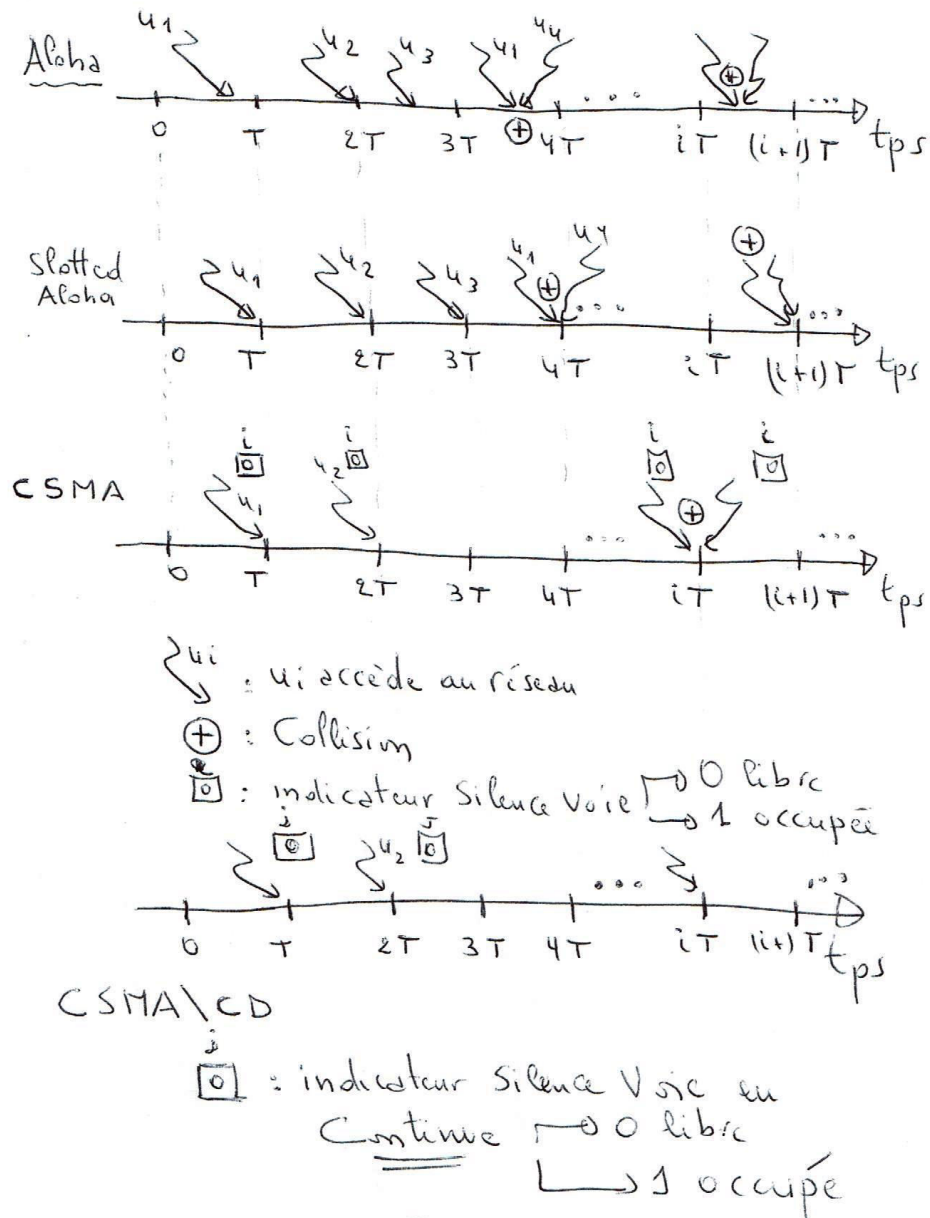 u1 u2 u3 u1 u4
Aloha
0 T 2T 3T 4T ... iT (i+1)T ... tps
Slotted
Aloha
u1 u2 u3 u1 u4
0 T 2T 3T 4T ... iT (i+1)T ... tps
i i i i
0 0 0 0
CSMA
u1 u2
0 T 2T 3T 4T ... iT (i+1)T ... tps
ui : ui accède au réseau
+ : Collision
0 : indicateur Silence Voie → 0 libre
→ 1 occupée
j j
0 u2 0
0 T 2T 3T 4T ... iT (i+)T ... tps
CSMA\CD
j
0 : indicateur Silence Voie en
Continue → 0 libre
→ 1 occupé